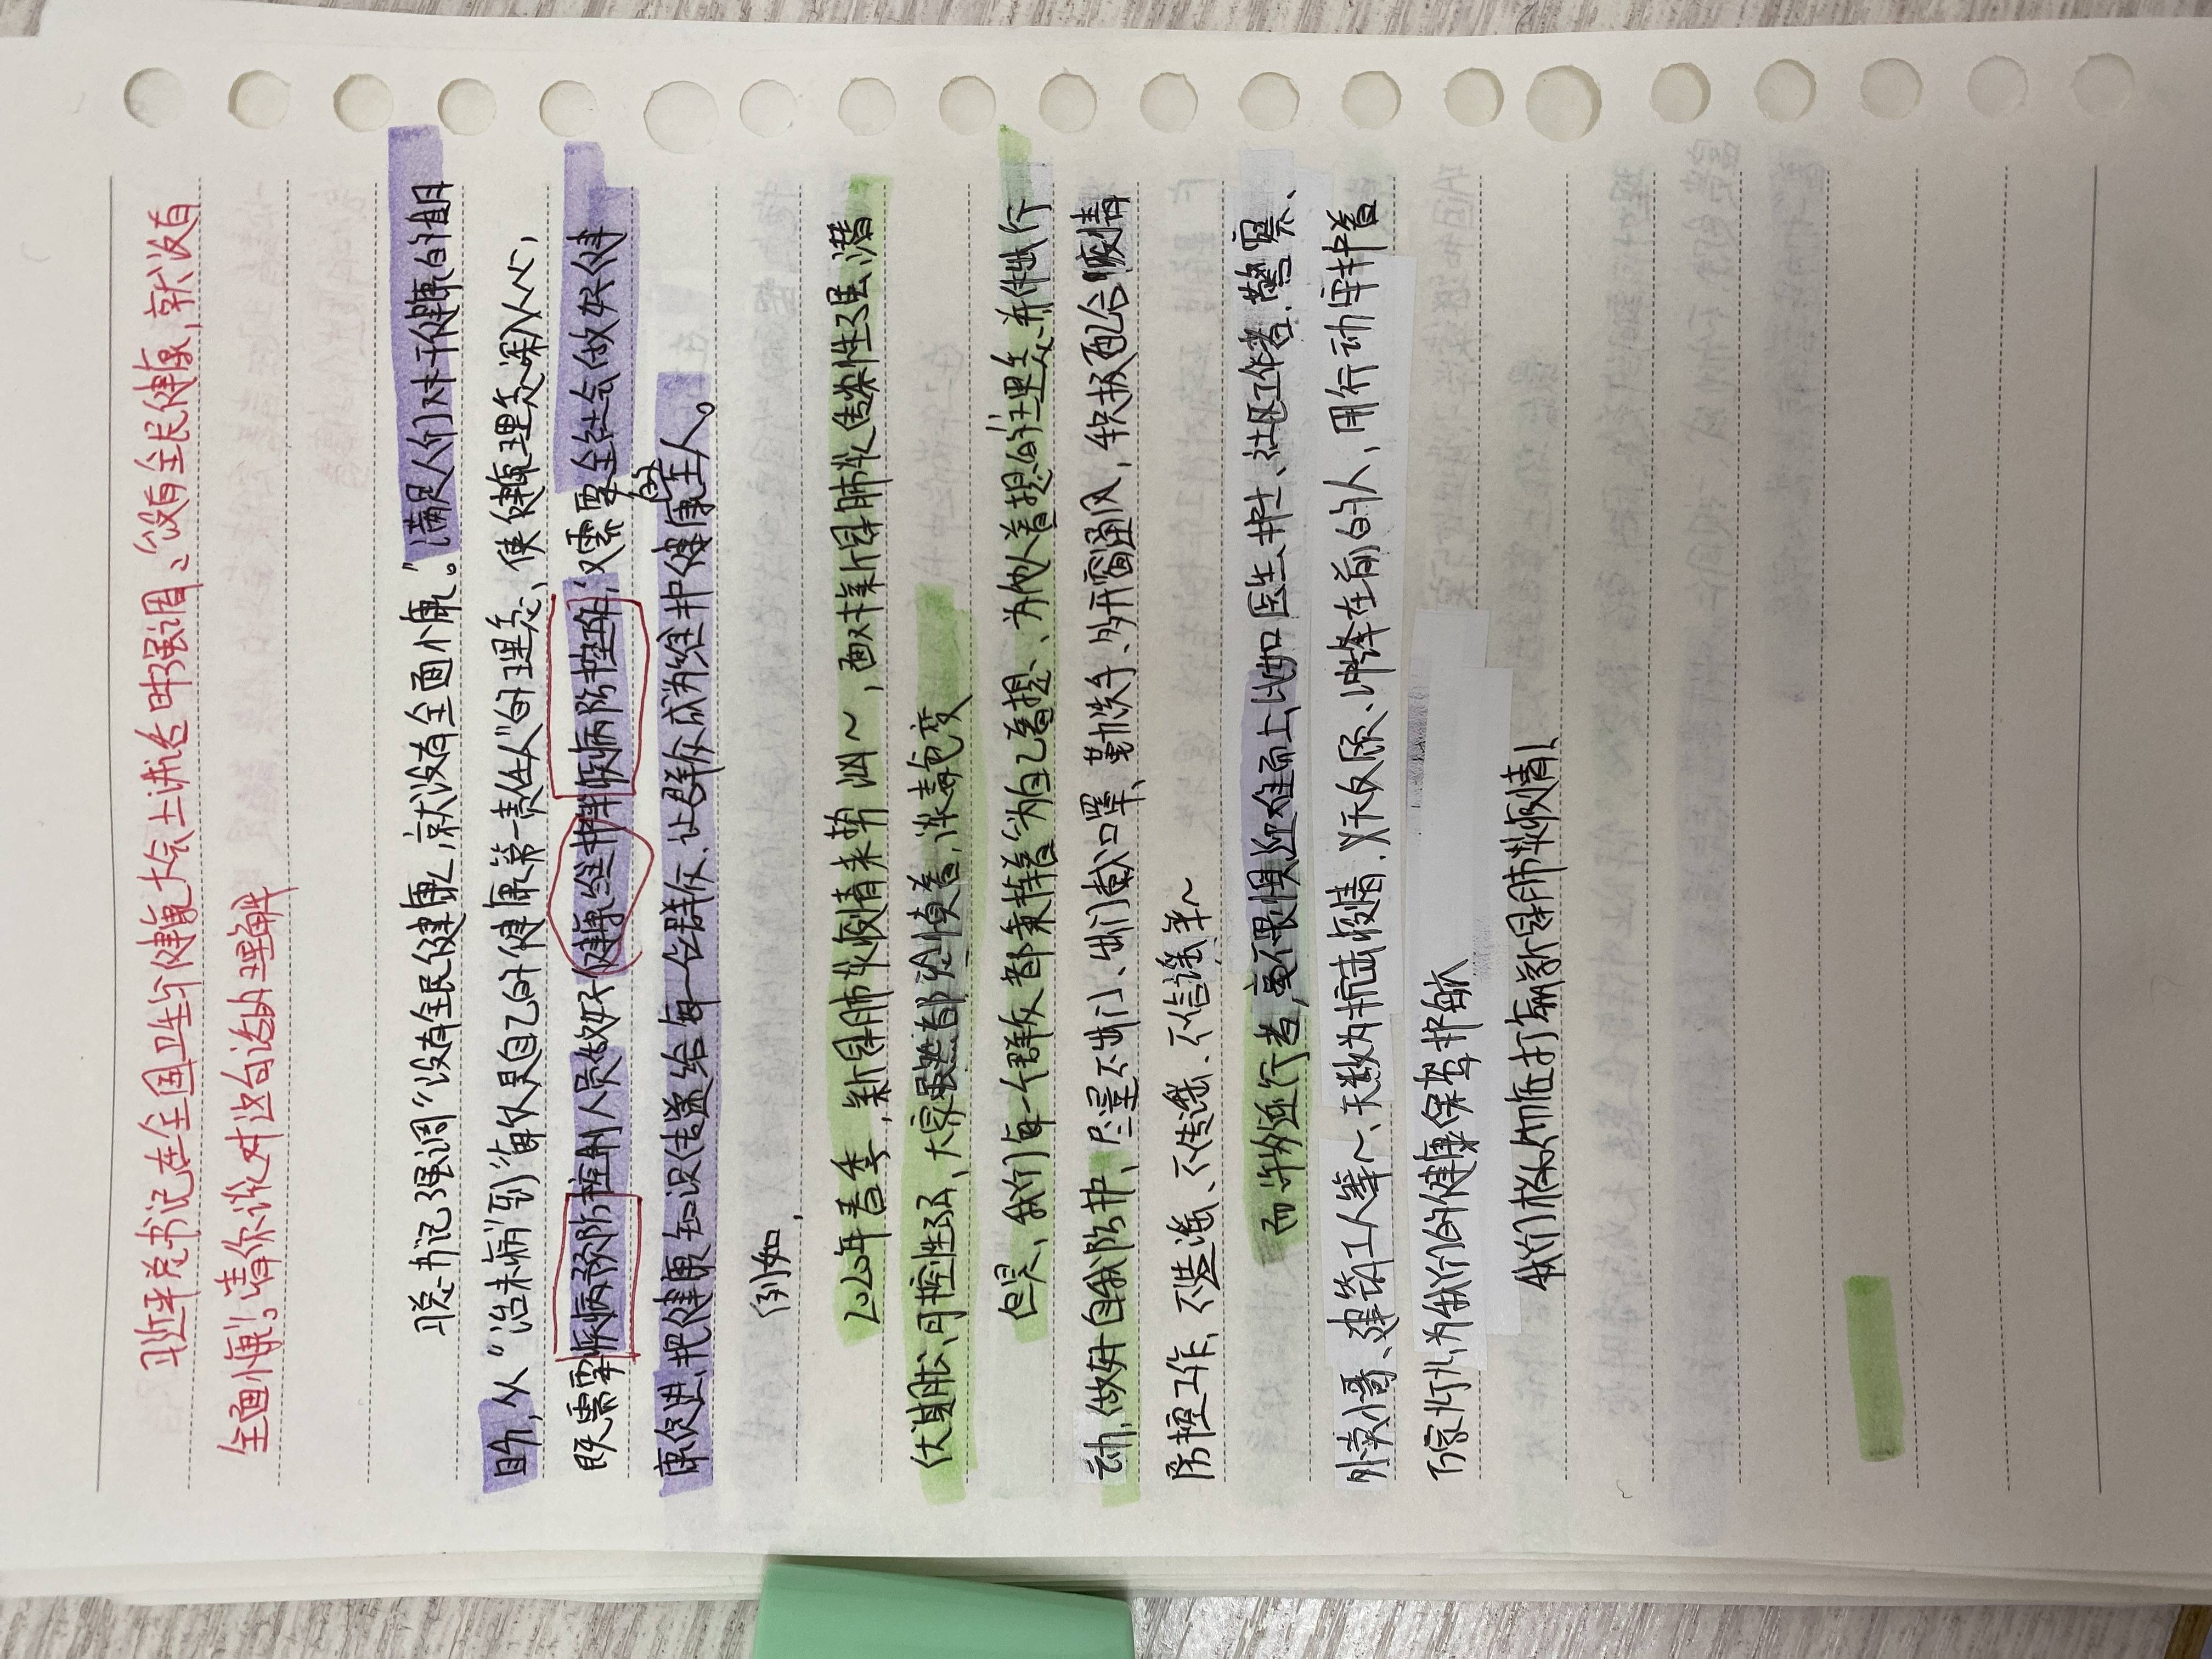 习近平总书记在全国卫生与健康大会上讲话时强调:“没有全民健康,就没有
全面小康”。请你谈谈对这句话的理解
习总书记强调“没有全民健康,就没有全面小康”。满足人们对于健康的祖
从“治未病”到“每个人是自己的健康第一责任人”的理念、使健康理念深入人心,
既需要疾病预防控制人员做好健康维护与疾病防控工作,又需要全社会做好健
康促进,把健康知识传递给每一位群众,让群众成为维护健康的主人。
例如,
2020年春季,新冠肺炎疫情来势汹~,面对新冠肺炎传染性强、潜
伏期长、可控性弱、大家虽然都恐惧着,谈毒色变
但是、我们每一个群众都秉持着“为自己着想、为他人着想”的理念并付出行
动,做好自我防护、尽量不出门、出门戴口罩、勤洗手、多开窗通风,积极配合疫情
防控工作、不造谣、不传谣、不信谣等~
而许多逆行者,毫不畏惧迎难而上,比如医生、护士、社区工作者、警察、
外卖小哥、建筑工人等~、无数为抗击疫情、义不反顾、冲锋在前的人,用行动守护着
万家灯火,为我们的健康保驾护航
我们松一定打赢新冠肺炎疫情!